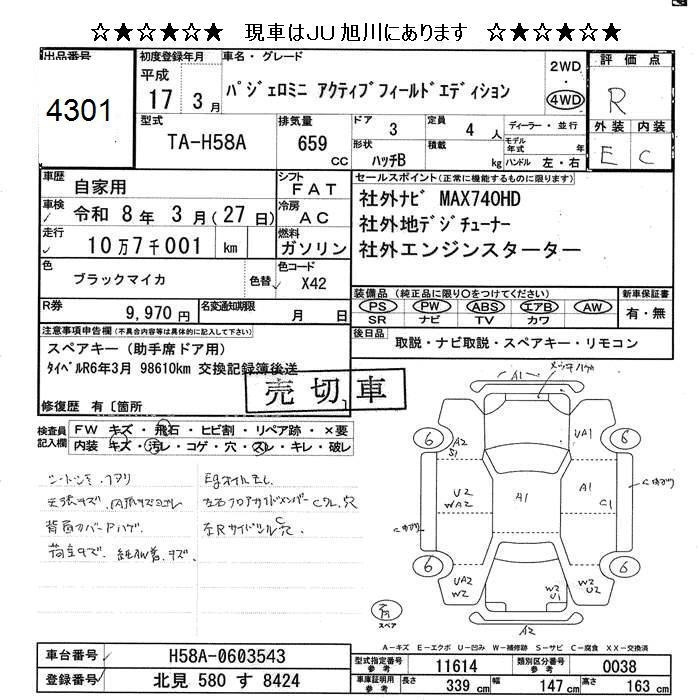 ☆★☆★☆★ 現車はJU旭川にあります ☆★☆★☆★
出品番号
4301
初度登録年月
平成
17 3月
車名・グレード
パジェロミニ アクティブフィールドエディション
2WD
・
4WD
評価点
R
外装 内装
E C
型式
TA-H58A
排気量
659
cc
ドア
3
定員
4 人
形状
ハッチB
積載
kg
ディーラー・並行
モデル年式 年
ハンドル 左・右
車歴
自家用
シフト
FAT
車検
令和 8年 3月(27日)
冷房
AC
走行
10万7千001 km
燃料
ガソリン
色
ブラックマイカ
色替
色コード
X42
R券
9,970円
名変通知期限
月 日
セールスポイント(正常に機能するものに限ります)
社外ナビ MAX740HD
社外地デジチューナー
社外エンジンスターター
装備品(純正品に限り○をつけてください)
PS PW ABS エアB AW
SR ナビ TV カワ
新車保証書
有・無
後日品
取説・ナビ取説・スペアキー・リモコン
注意事項申告欄(不具合内容等は具体的に記入して下さい)
スペアキー(助手席ドア用)
タイベルR6年3月 98610km 交換記録簿後送
修復歴 有〔箇所 〕
売切車
検査員記入欄
FW キズ・飛石・ヒビ割・リペア跡・×要
内装 キズ・汚レ・コゲ・穴・スレ・キレ・破レ
背面カバーPハゲ
A1
6
A2
S1
UA1
6
U2
WA2
A1
A1
C1
6
UA2
W2
W2
U1
W2
U2
6
A2
スペア
A-キズ E-エクボ U-凹み W-補修跡 S-サビ C-腐食 XX-交換済
車台番号
H58A-0603543
登録番号
北見 580 す 8424
型式指定番号
参考
11614
類別区分番号
参考
0038
車庫証明用
参考
長さ 339 cm
幅 147 cm
高さ 163 cm